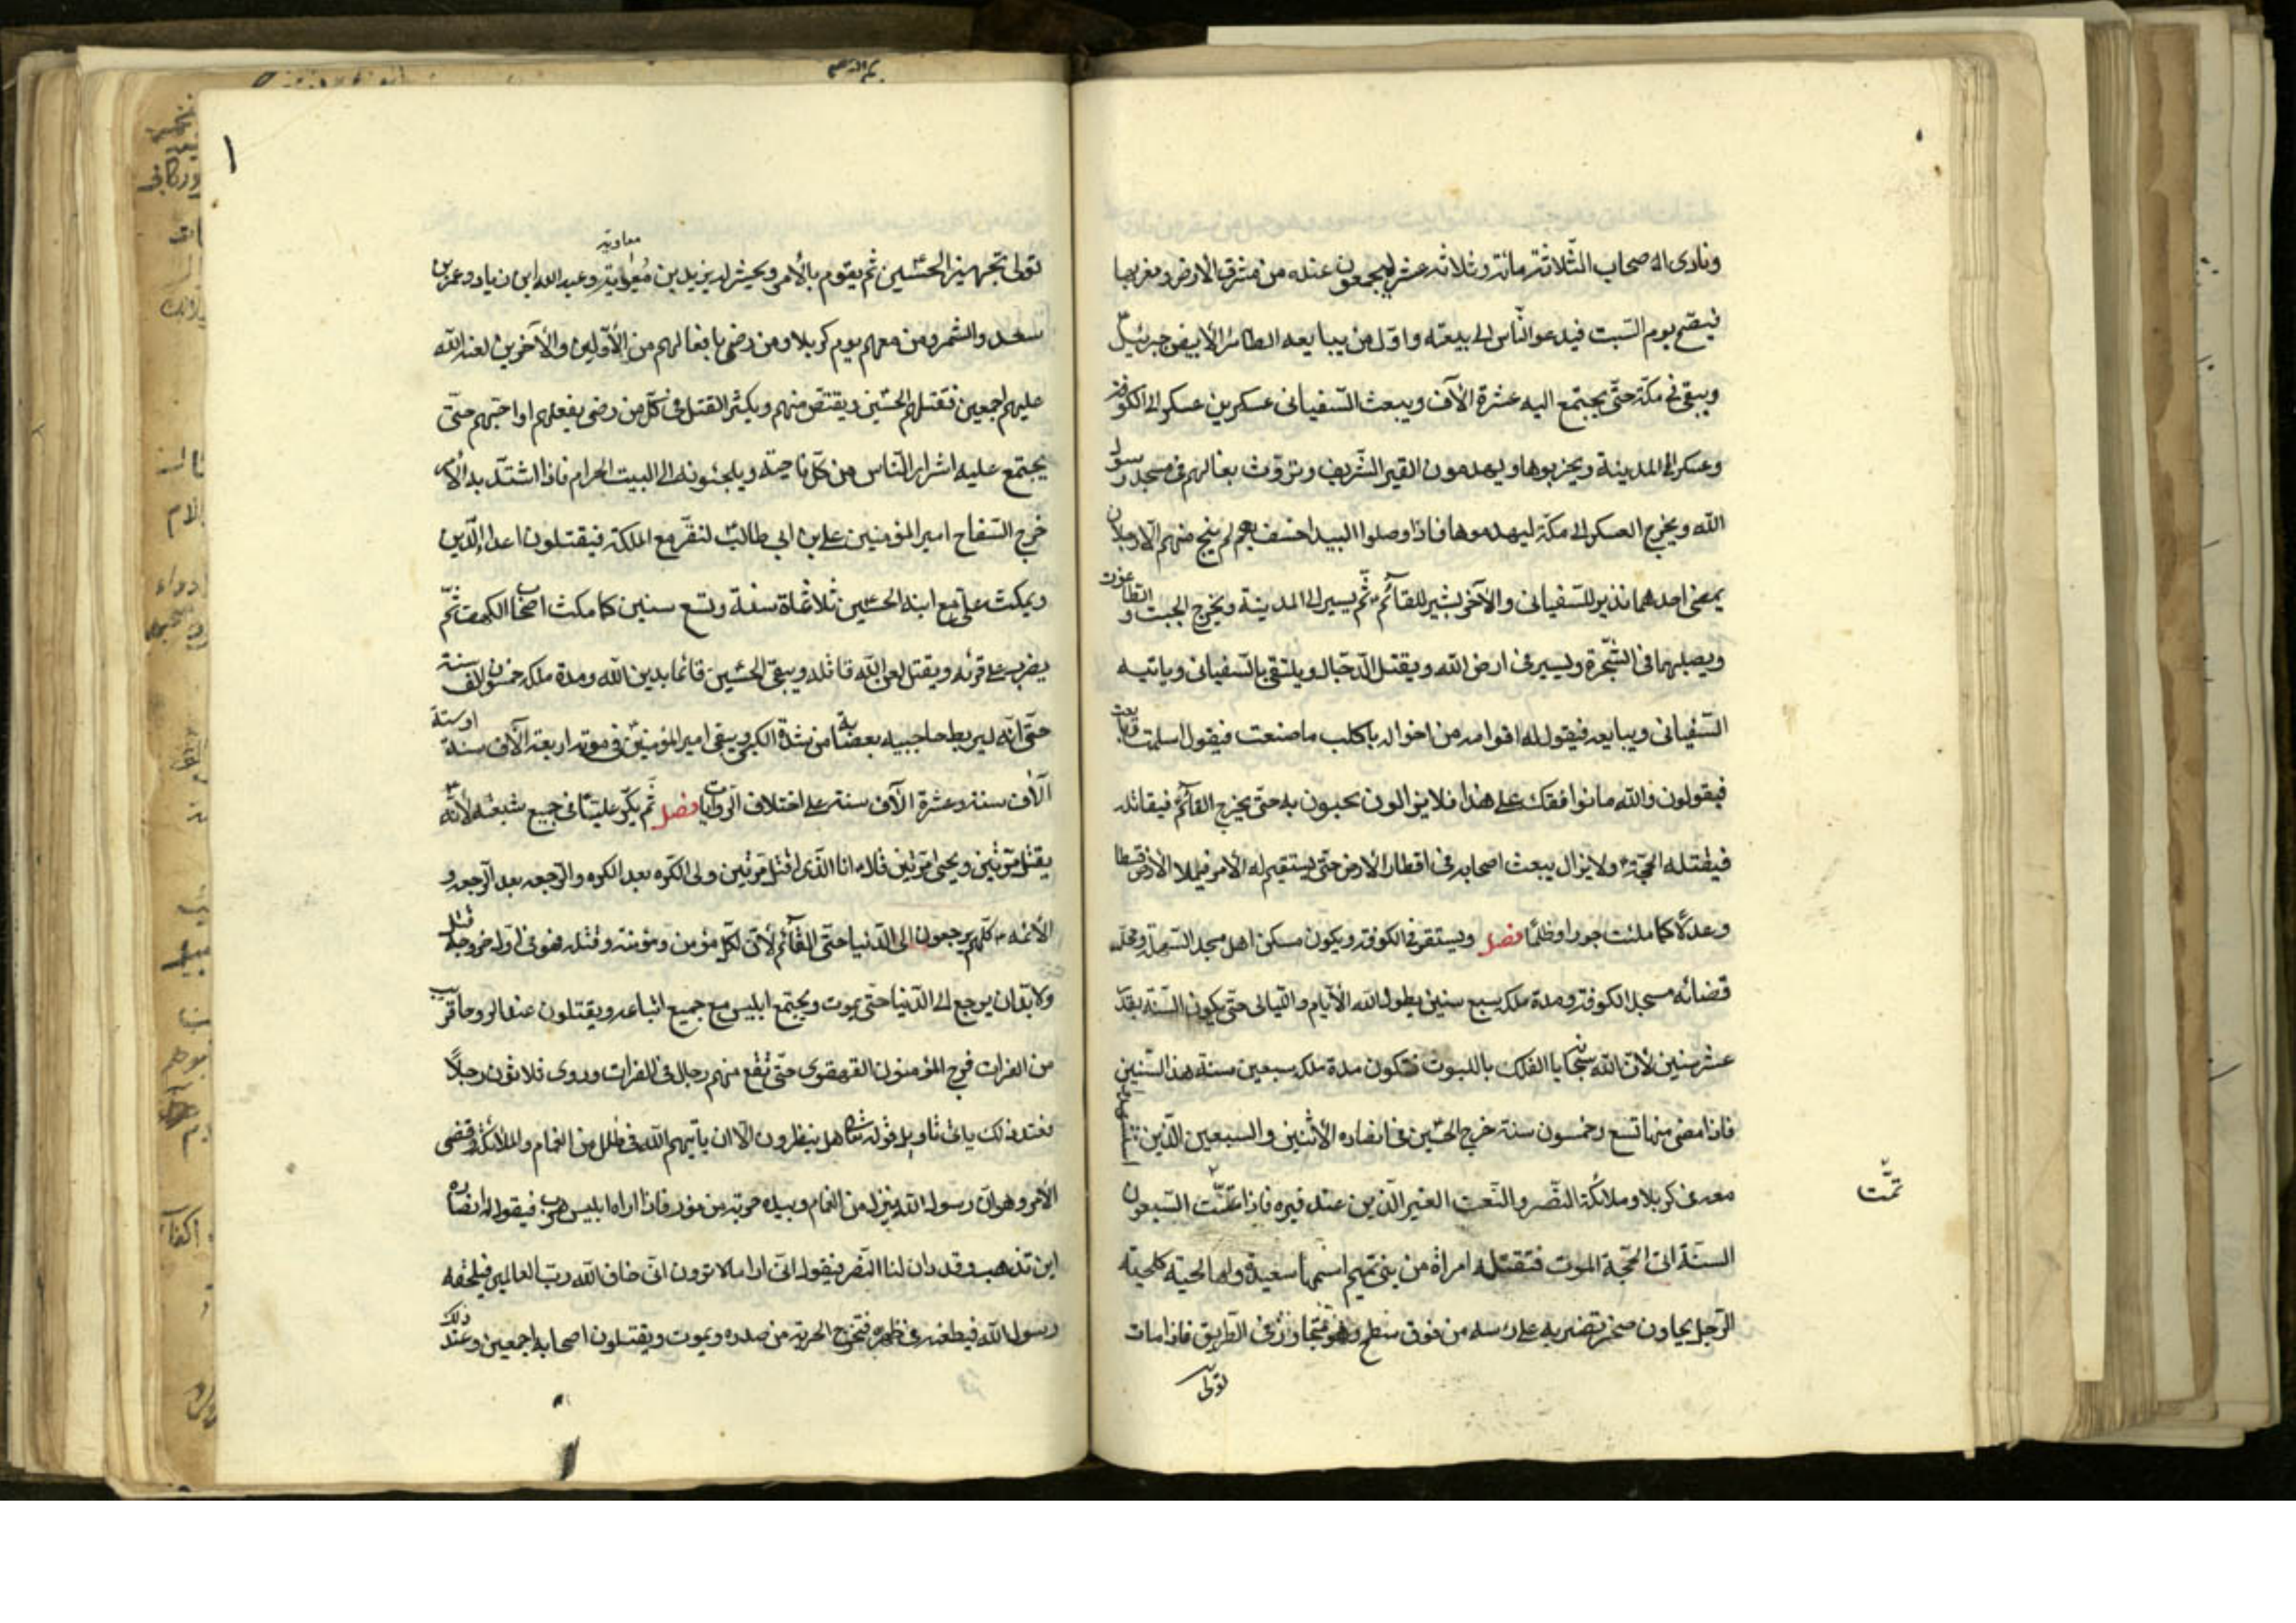 ونادى له صحاب الثلاثة مائة وثلاثه عشر ليجمعون عنده من مشرق الارض ومغربها
فيصبح يوم السبت فيدعو الناس الى بيعته واول من يبايعه الطائر الأبيض جبرئيل
ويبقى في مكة حتى يجتمع اليه عشرة الآف ويبعث السفيانى عسكرين عسكر الى الكوفة
وعسكر الى المدينة ويخربوها ويهدمون القبر الشريف وتروث بغالهم في مسجد رسول
الله ويخرج العسكر الى مكة ليهدموها فاذا وصلوا البيدا خسف بهم لم ينج منهم الا رجلان
يمضى احدهما نذير للسفيانى والآخر بشير للقآئم ثم يسير الى المدينة ويخرج الجبت والطاغوت
ويصلبهما فى الشجرة ويسير فى ارض الله ويقتل الدجال ويلتقى بالسفيانى وياتيه
السفيانى ويبايعه فيقول له اقوامه من اخواله يا كلب ما صنعت فيقول اسلمت وبايعت
فيقولون والله ما نوافقك على هذا فلا يزالون بحبون به حتى يخرج القآئم فيقاتله
فيقتله الحجة ولا يزال يبعث اصحابه فى اقطار الارض حتى يستقيم له الأمر فيملا الأرض قسطا
وعدلا كما ملئت جورا وظلما فصل ويستقر فى الكوفة ويكون مسكن اهله مسجد السهلة ومحل
قضائه مسجد الكوفة ومدة ملكه سبع سنين يطول الله الأيام والليالى حتى يكون السنة بقدر
عشر سنين لأن الله سبحانه يا الفلك باللبوث فتكون مدة ملكه سبعين سنة هذا السنين
فاذا مضى منها تسع وخمسون سنة خرج الحسين فى انصاره الأثنين والسبعين الذين استشهدوا
معه فى كربلا وملائكة النصر والنعت الغير الذين عند قبره فاذا تمت السبعون
تمت
السنة اتى الحجة الموت فتقتله امراة من بنى تميم اسمها سعيدة ولها لحية كلحية
الرجل بجاون صخر تضربه على راسه من فوق سطح وهو متجاوز فى الطريق فاذا مات
تولى
تولى تجهيزه الحسين ثم يقوم بالأمر ويحشر له يزيد بن معاوية وعبيد الله ابن زياد وعمر بن
معاوية
سعد والشمر ومن معهم يوم كربلا ومن رضى بافعالهم من الأولين والآخرين لعنة الله
عليهم اجمعين فيقتلهم الحسين ويقتص منهم ويكثر القتل فى كل من رضى بفعلهم او احبهم حتى
يجتمع عليه اشرار الناس من كل ناحية ويلجئونه الى البيت الحرام فاذا اشتد به الأمر
خرج السفاح امير المؤمنين على بن ابى طالب لنصره مع الملائكة فيقتلون اعداء الدين
ويمكث على مع ابنه الحسين ثلاثماة سنة وتسع سنين كما مكث اصحاب الكهف ثم
يضرب على قرنه ويقتل لعن الله قاتله ويبقى الحسين قائما بدين الله ومدة ملكه خمسون الف سنة
حتى انه ليربط حاجبيه بعصابة من شدة الكبر ويبقى امير المؤمنين فى موته اربعة الآف سنة او ستة
الآف سنة وعشرة الآف سنة على اختلاف الروايات فصل ثم يكر على فى جميع شيعته لأنه
يقتل مرتين ويحيى مرتين قال انا الذى اقتل مرتين ولى الكره بعد الكره والرجعه بعد الرجعه و
الأئمه كلهم يرجعون الى الدنيا حتى القآئم لأن لكل مؤمن موتة وقتله فهو فى اول خروجه قتل
ولا بد ان يرجع الى الدنيا حتى يموت ويجتمع ابليس مع جميع اتباعه ويقتتلون عند الروحا قريب
من الفرات فيرجع المؤمنون القهقرى حتى تقع منهم رجال فى الفرات وروى ثلاثون رجلاً
فعند ذلك ياتى تاويل قوله تعالى هل ينظرون الا ان ياتيهم الله فى ظلل من الغمام والملائكة وقضى
الأمر وهو ان رسول الله ينزل من الغمام وبيده حربة من نور فاذا اراه ابليس هرب فيقول له انصاره
اين تذهب وقد ان لنا النصر فيقول انى ارا ما لا ترون انى اخاف الله رب العالمين فيلحقه
رسول الله فيطعنه فى ظهره فتخرج الحربة من صدره ويموت ويقتلون اصحابه اجمعين وعند ذلك